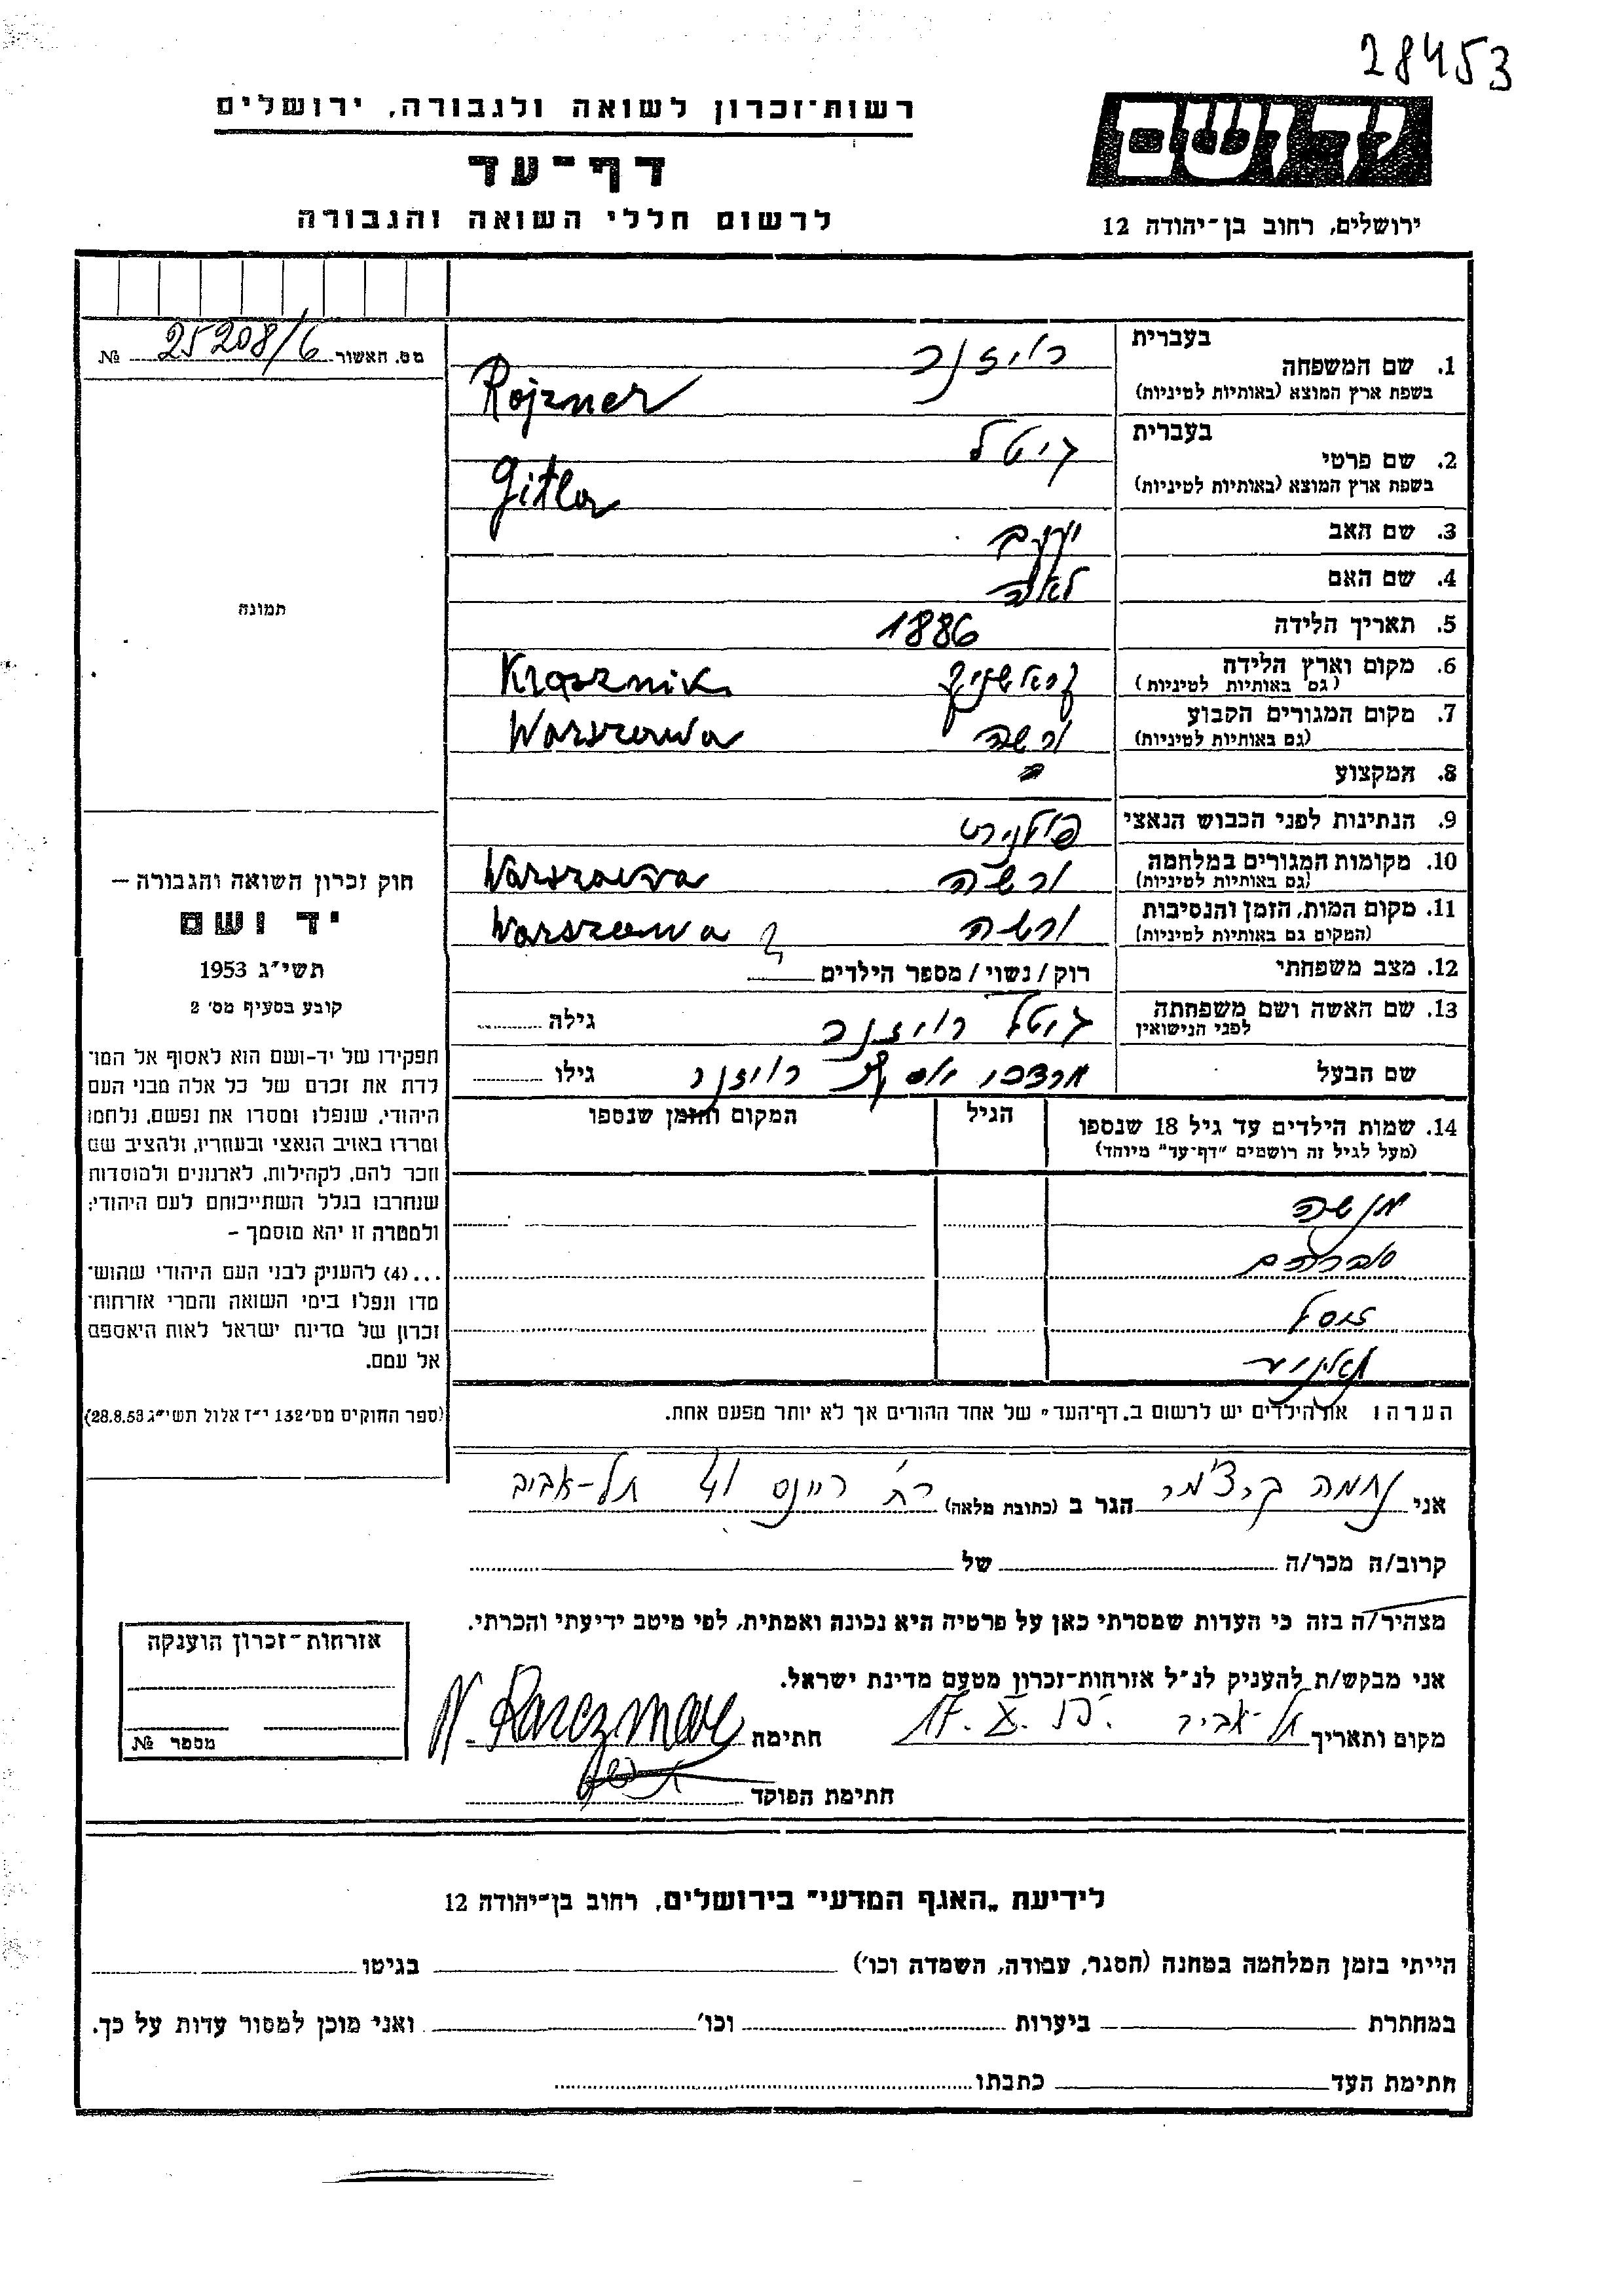 28453
רשות־זכרון לשואה ולגבורה, ירושלים
יד ושם
דף־עד
לרשום חללי השואה והגבורה
ירושלים, רחוב בן־יהודה 12
מס. האשור 25208/6 №
1. שם המשפחה בעברית רויזנר
בשפת ארץ המוצא (באותיות לטיניות) Rojzner
2. שם פרטי בעברית גיטל
בשפת ארץ המוצא (באותיות לטיניות) Gitla
3. שם האב יעקב
4. שם האם לאה
5. תאריך הלידה 1886
6. מקום וארץ הלידה (גם באותיות לטיניות) קראשניק Krasznik
7. מקום המגורים הקבוע (גם באותיות לטיניות) ורשה Warszawa
8. המקצוע
9. הנתינות לפני הכבוש הנאצי פולנית
10. מקומות המגורים במלחמה (גם באותיות לטיניות) ורשה Warszawa
11. מקום המות, הזמן והנסיבות (המקום גם באותיות לטיניות) ורשה Warszawa
12. מצב משפחתי רוק / נשוי / מספר הילדים
13. שם האשה ושם משפחתה לפני הנישואין גיטל רויזנר גילה
שם הבעל מרדכי רויזנר גילו
14. שמות הילדים עד גיל 18 שנספו הגיל המקום והזמן שנספו
(מעל לגיל זה רושמים "דף־עד" מיוחד)
מנשה
אברהם
הערה ו את הילדים יש לרשום ב„דף־העד" של אחד ההורים אך לא יותר מפעם אחת.
תמונה
חוק זכרון השואה והגבורה —
יד ושם
תשי"ג 1953
קובע בסעיף מס׳ 2
תפקידו של יד-ושם הוא לאסוף אל המו־
לדת את זכרם של כל אלה מבני העם
היהודי, שנפלו ומסרו את נפשם, נלחמו
ומרדו באויב הנאצי ובעוזריו, ולהציב שם
וזכר להם, לקהילות, לארגונים ולמוסדות
שנחרבו בגלל השתייכותם לעם היהודי;
ולמטרה זו יהא מוסמך —
...(4) להעניק לבני העם היהודי שהוש־
מדו ונפלו בימי השואה והמרי אזרחות־
זכרון של מדינת ישראל לאות היאספם
אל עמם.
(ספר החוקים מס׳ 132 י"ז אלול תשי"ג 28.8.53)
אני נחמה קרצ'מר הגר ב (כתובת מלאה) רח' ריינס 41 תל-אביב
קרוב/ה מכר/ה של
מצהיר/ה בזה כי העדות שמסרתי כאן על פרטיה היא נכונה ואמתית, לפי מיטב ידיעתי והכרתי.
אני מבקש/ת להעניק לנ"ל אזרחות-זכרון מטעם מדינת ישראל.
מקום ותאריך תל-אביב 17. X. חתימה N. Karczmar
חתימת הפוקד
אזרחות־זכרון הוענקה
מספר №
לידיעת „האגף המדעי" בירושלים, רחוב בן־יהודה 12
הייתי בזמן המלחמה במחנה (הסגר, עבודה, השמדה וכו׳) בגיטו
במחתרת ביערות וכו׳ ואני מוכן למסור עדות על כך.
חתימת העד כתבתו